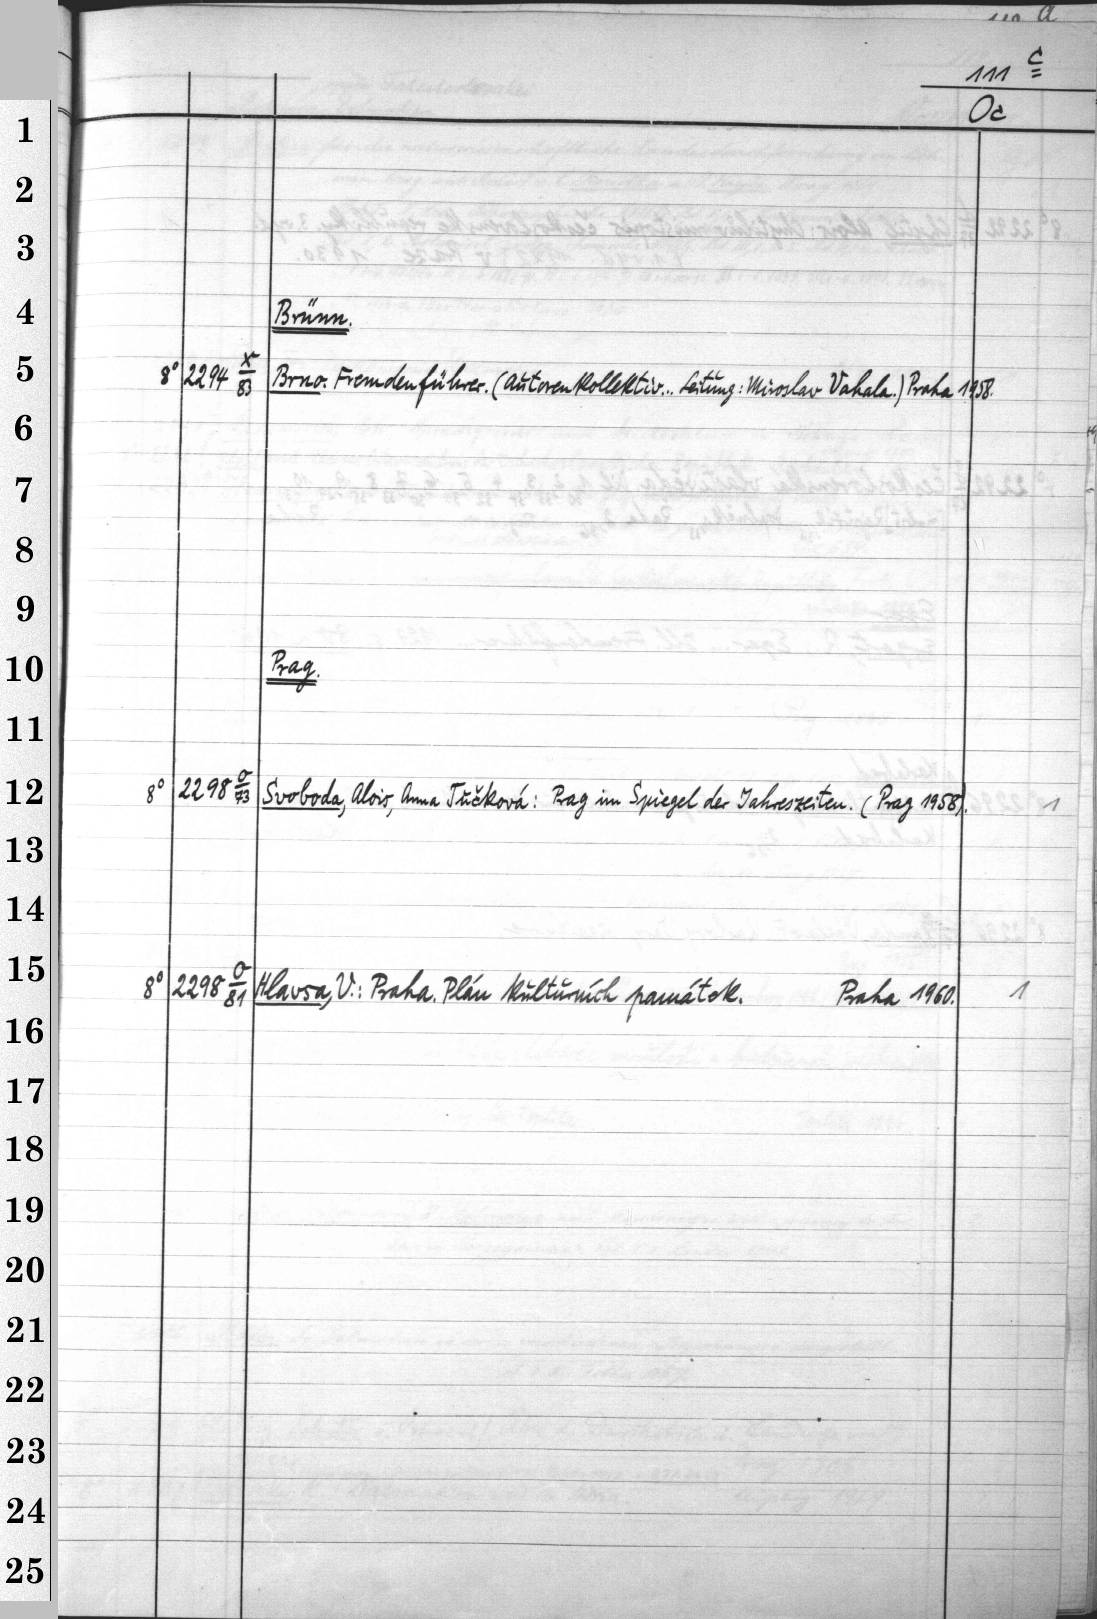 111 c
Oc
1
2
3
4 Brünn.
5 8° 2294 x/83 Brno. Fremdenführer. (Autorenkollektiv... Leitung: Miroslav Vahala.) Praha 1958.
6
7
8
9
10 Prag.
11
12 8° 2298 σ/73 Svoboda, Alois, Anna Tučková: Prag im Spiegel der Jahreszeiten. (Prag 1958).
13
14
15 8° 2298 σ/81 Hlavsa, V.: Praha. Plán kulturních památek. Praha 1960. 1
16
17
18
19
20
21
22
23
24
25